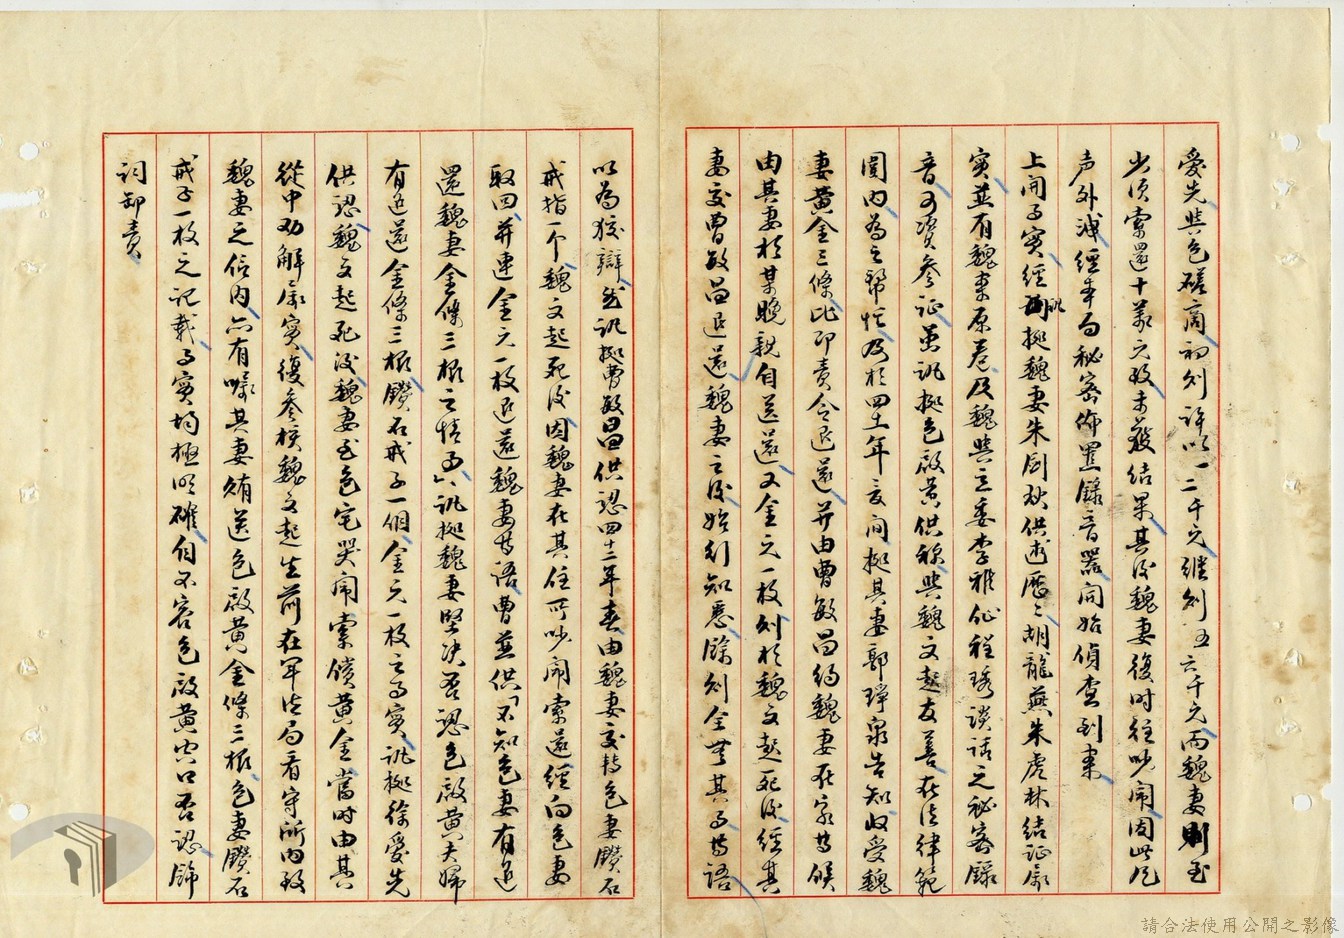 愛先與包磋商初則許以一二千元繼則五六千元而魏妻則至
少須索還十萬元致未獲結果其後魏妻復時往吵鬧因此風
声外洩經本局秘密佈置錄音器開始偵查到案
上開事實經訊據魏妻朱劍秋供述歷歷胡龍燕朱虎林結証屬
實並有魏案原卷及魏與立委李雅仙程琇談話之秘密錄
音可資參证虽訊據包啟黃供稱與魏文起友善在法律範
圍内為之帮忙及於四十一年夏间據其妻郭琤泉告知收受魏
妻黄金三條比即責令退還并由曹敏昌約魏妻在家等候
由其妻於某晚親自送還又金元一枚則於魏文起死後經其
妻交曹敏昌退還魏妻之後始行知悉餘則全無其事等語
以為狡辯然訊據曹敏昌供認四十二年春由魏妻交轉包妻鑽石
戒指一个魏文起死後因魏妻在其住所吵鬧索還經向包妻
取回并連金元一枚退還魏妻等語曹並供「不知包妻有退
還魏妻金條三根之情事」訊據魏妻堅决否認包啟黄夫婦
有退還金條三根鑽石戒子一個金元一枚之事實訊據徐愛先
供認魏文起死後魏妻至包宅哭鬧索償黄金當時由其
從中劝解屬實復參核魏文起生前在军法局看守所内致
魏妻之信内亦有囑其妻赠送包啟黄金條三根包妻鑽石
戒子一枚之記載事實均極明確自不容包啟黄空口否認飾
词卸責